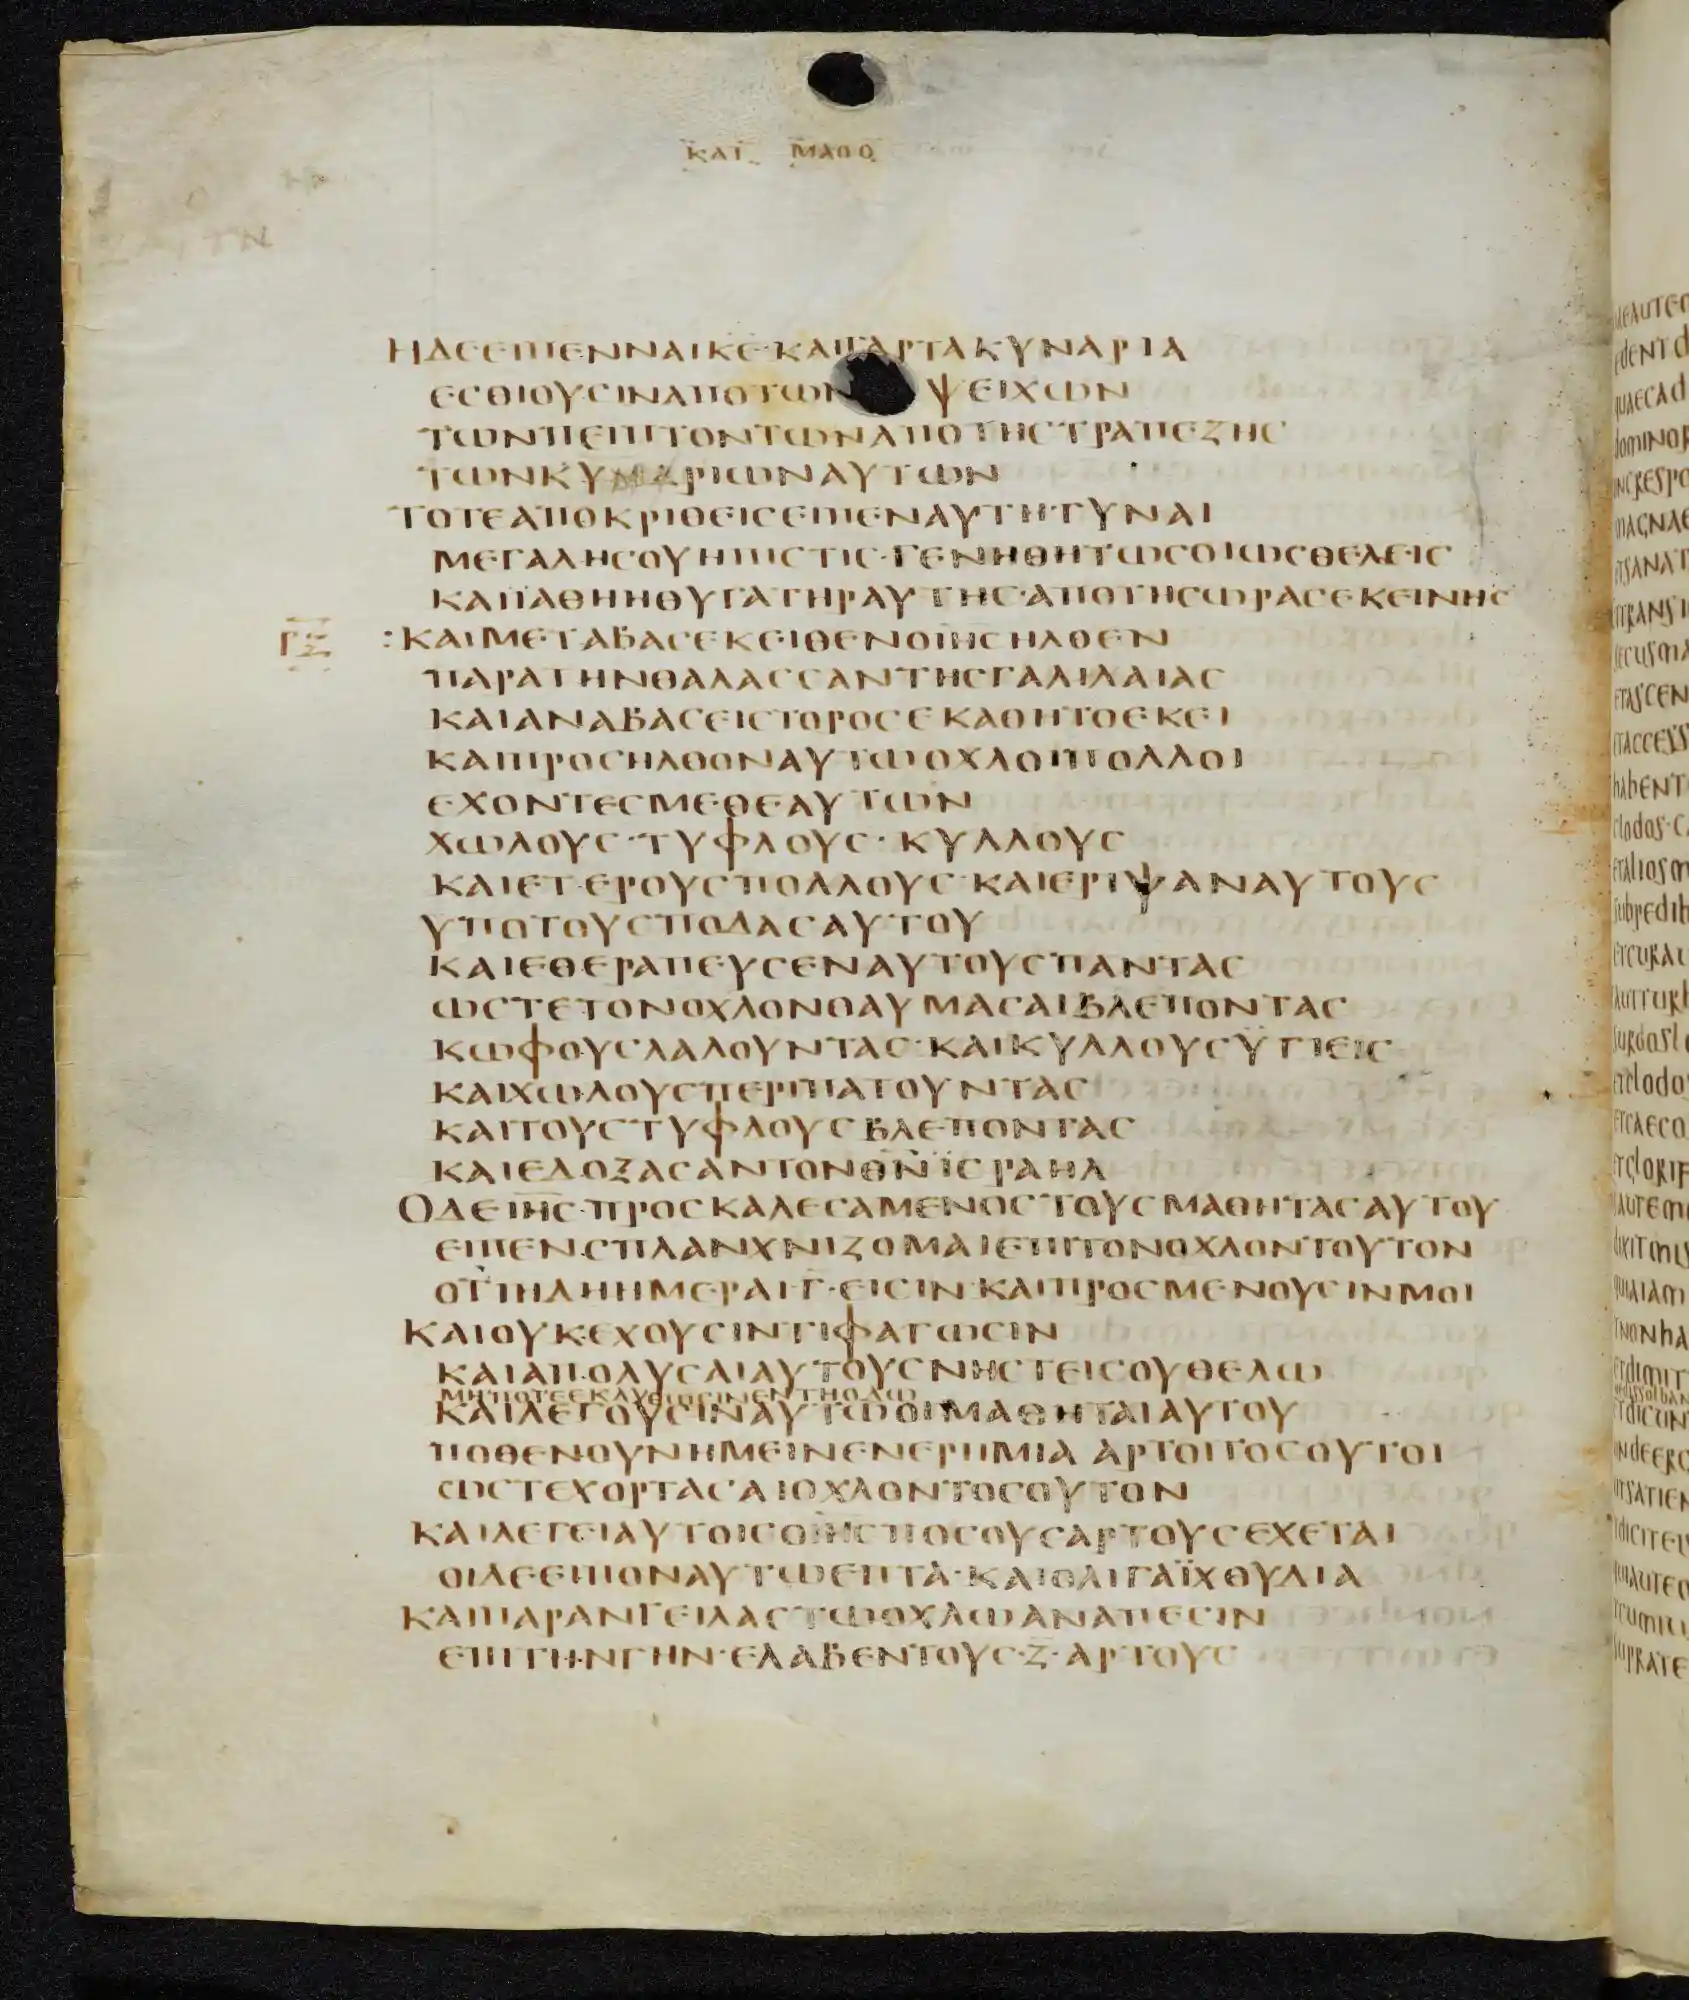 ΚΑΤ ΜΑΘΘ
ΗΔΕΕΙΠΕΝΝΑΙΚΕ·ΚΑΙΓΑΡΤΑΚΥΝΑΡΙΑ
ΕΣΘΙΟΥΣΙΝΑΠΟΤΩΝ ΨΕΙΧΩΝ
ΤΩΝΠΕΙΠΤΟΝΤΩΝΑΠΟΤΗΣΤΡΑΠΕΖΗΣ
ΤΩΝΚΥΝΑΡΙΩΝΑΥΤΩΝ
ΤΟΤΕΑΠΟΚΡΙΘΕΙΣΕΙΠΕΝΑΥΤΗ·ΓΥΝΑΙ
ΜΕΓΑΛΗΣΟΥΗΠΙΣΤΙΣ·ΓΕΝΗΘΗΤΩΣΟΙΩΣΘΕΛΕΙΣ
ΚΑΙΪΑΘΗΗΘΥΓΑΤΗΡΑΥΤΗΣ·ΑΠΟΤΗΣΩΡΑΣΕΚΕΙΝΗΣ
ΓΞ :ΚΑΙΜΕΤΑΒΑΣΕΚΕΙΘΕΝΟΙΗΣΗΛΘΕΝ
ΠΑΡΑΤΗΝΘΑΛΑΣΣΑΝΤΗΣΓΑΛΙΛΑΙΑΣ
ΚΑΙΑΝΑΒΑΣΕΙΣΤΟΡΟΣΕΚΑΘΗΤΟΕΚΕΙ
ΚΑΙΠΡΟΣΗΛΘΟΝΑΥΤΩΟΧΛΟΙΠΟΛΛΟΙ
ΕΧΟΝΤΕΣΜΕΘΕΑΥΤΩΝ
ΧΩΛΟΥΣ·ΤΥΦΛΟΥΣ·ΚΥΛΛΟΥΣ
ΚΑΙΕΤΕΡΟΥΣΠΟΛΛΟΥΣ·ΚΑΙΕΡΙΨΑΝΑΥΤΟΥΣ
ΥΠΟΤΟΥΣΠΟΔΑΣΑΥΤΟΥ
ΚΑΙΕΘΕΡΑΠΕΥΣΕΝΑΥΤΟΥΣΠΑΝΤΑΣ
ΩΣΤΕΤΟΝΟΧΛΟΝΘΑΥΜΑΣΑΙΒΛΕΠΟΝΤΑΣ
ΚΩΦΟΥΣΛΑΛΟΥΝΤΑΣ·ΚΑΙΚΥΛΛΟΥΣΥΓΙΕΙΣ
ΚΑΙΧΩΛΟΥΣΠΕΡΙΠΑΤΟΥΝΤΑΣ
ΚΑΙΤΟΥΣΤΥΦΛΟΥΣΒΛΕΠΟΝΤΑΣ
ΚΑΙΕΔΟΞΑΣΑΝΤΟΝΘΝΪΣΡΑΗΛ
ΟΔΕΙΗΣ·ΠΡΟΣΚΑΛΕΣΑΜΕΝΟΣΤΟΥΣΜΑΘΗΤΑΣΑΥΤΟΥ
ΕΙΠΕΝ·ΣΠΛΑΝΧΝΙΖΟΜΑΙΕΠΙΤΟΝΟΧΛΟΝΤΟΥΤΟΝ
ΟΤΙΗΔΗΗΜΕΡΑΙ·Γ·ΕΙΣΙΝ·ΚΑΙΠΡΟΣΜΕΝΟΥΣΙΝΜΟΙ
ΚΑΙΟΥΚΕΧΟΥΣΙΝΤΙΦΑΓΩΣΙΝ
ΚΑΙΑΠΟΛΥΣΑΙΑΥΤΟΥΣΝΗΣΤΕΙΣΟΥΘΕΛΩ
ΜΗΠΟΤΕΕΚΛΥΘΩΣΙΝΕΝΤΗΟΔΩ
ΚΑΙΛΕΓΟΥΣΙΝΑΥΤΩΟΙΜΑΘΗΤΑΙΑΥΤΟΥ
ΠΟΘΕΝΟΥΝΗΜΕΙΝΕΝΕΡΗΜΙΑ ΑΡΤΟΙΤΟΣΟΥΤΟΙ
ΩΣΤΕΧΟΡΤΑΣΑΙΟΧΛΟΝΤΟΣΟΥΤΟΝ
ΚΑΙΛΕΓΕΙΑΥΤΟΙΣΟΙΗΣΠΟΣΟΥΣΑΡΤΟΥΣΕΧΕΤΑΙ
ΟΙΔΕΕΙΠΟΝΑΥΤΩΕΠΤΑ·ΚΑΙΟΛΙΓΑΪΧΘΥΔΙΑ
ΚΑΙΠΑΡΑΝΓΕΙΛΑΣΤΩΟΧΛΩΑΝΑΠΕΣΙΝ
ΕΠΙΤΗΝΓΗΝ·ΕΛΑΒΕΝΤΟΥΣ·Ζ·ΑΡΤΟΥΣ